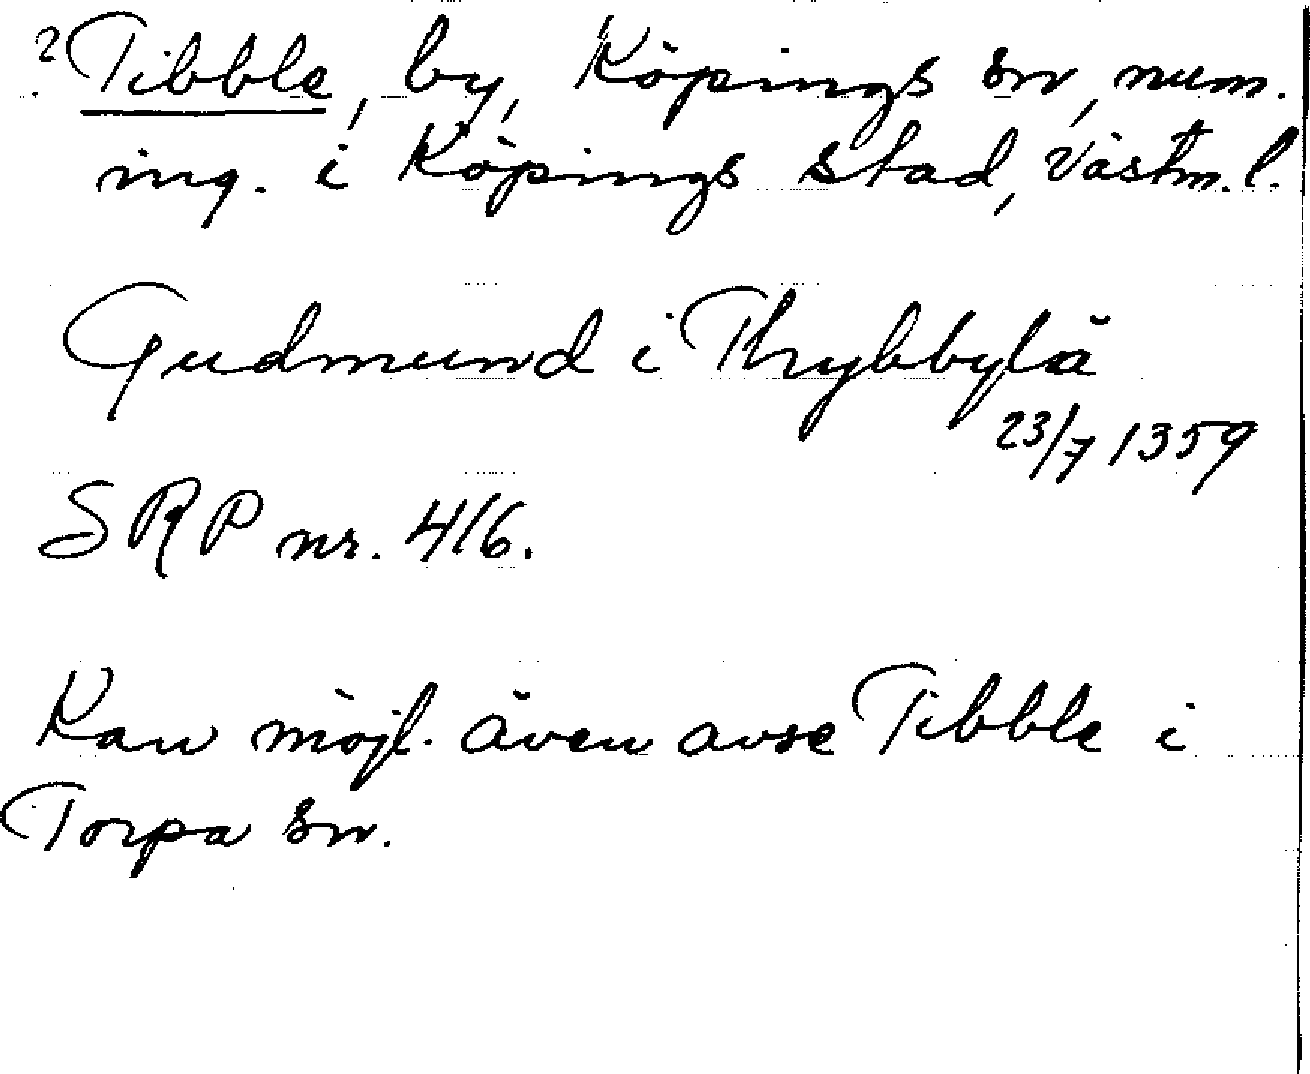 ? Tibble, by, Köpings sn, num.
ing. i Köpings stad, Västm. l.
Gudmund i Thybbylä
23/7 1359
SRP nr. 416.
Kan möjl. även avse Tibble i
Torpa sn.